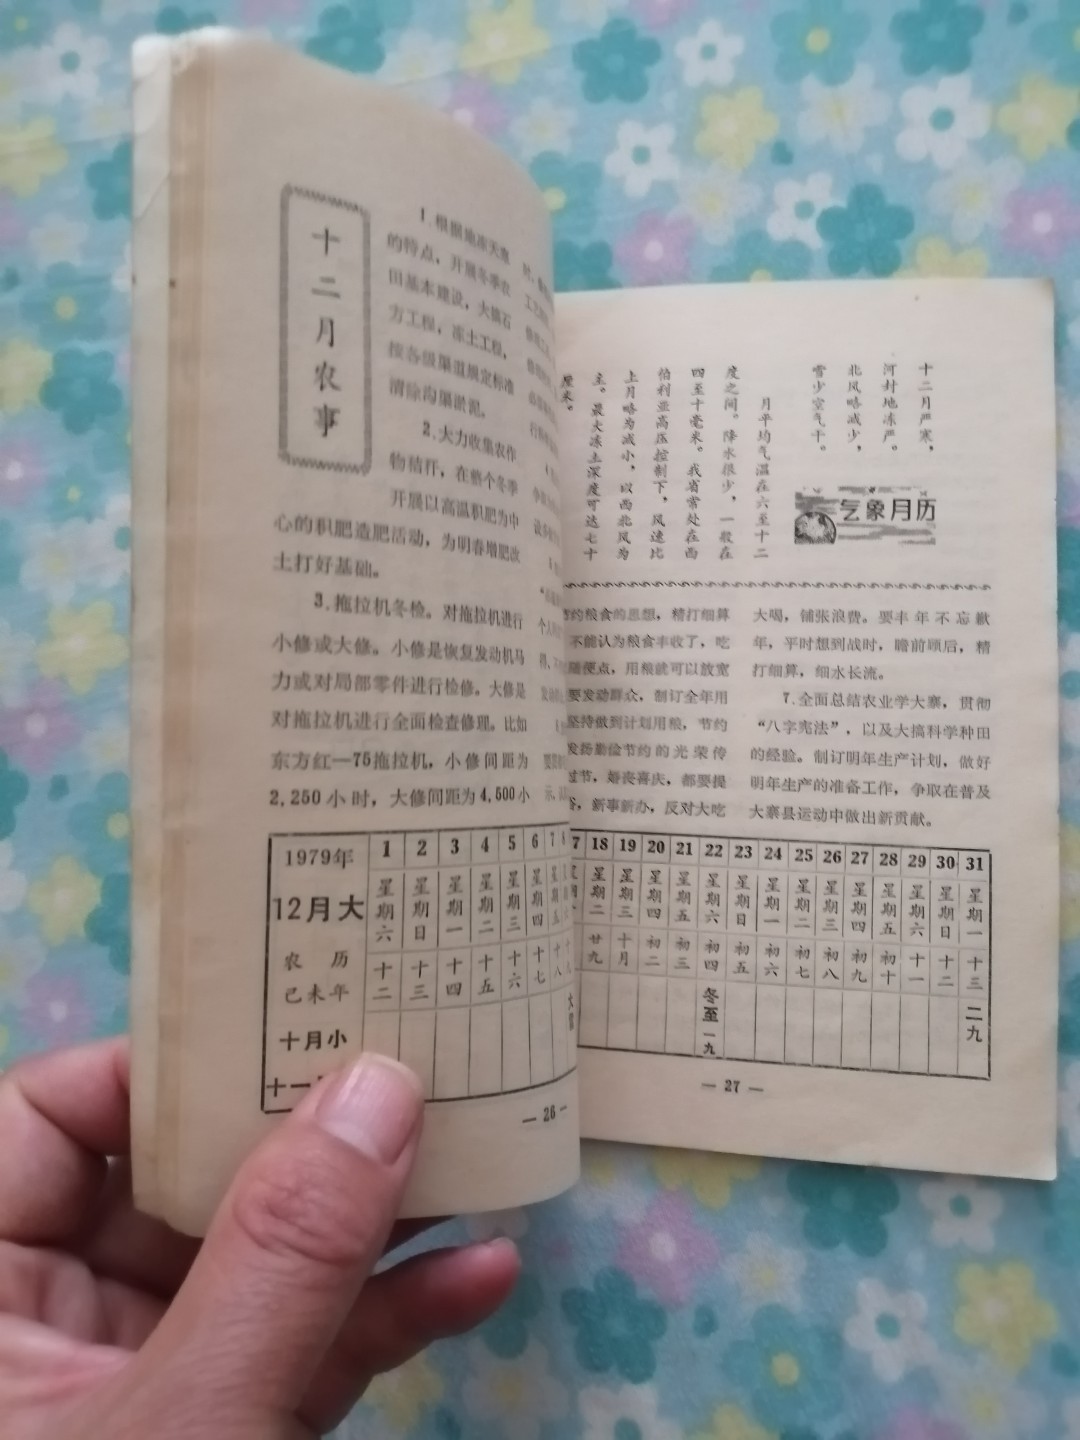 十二月农事
1.根据地冻天寒
的特点，开展冬季农
田基本建设，大搞石
方工程，冻土工程，
按各级渠道规定标准
清除沟渠淤泥。
2.大力收集农作
物秸秆，在整个冬季
开展以高温积肥为中
心的积肥造肥活动，为明春增肥改
土打好基础。
3.拖拉机冬检。对拖拉机进行
小修或大修。小修是恢复发动机马
力或对局部零件进行检修。大修是
对拖拉机进行全面检查修理。比如
东方红—75拖拉机，小修间距为
2,250小时，大修间距为4,500小
1979年
12月大
农历
己未年
十月小
1 2 3 4 5 6 7
星期六 星期日 星期一 星期二 星期三 星期四 星期五
十二 十三 十四 十五 十六 十七 十八
— 26 —
气象月历
十二月严寒，
河封地冻严。
北风略减少，
雪少空气干。
月平均气温在六至十二
度之间。降水很少，一般在
四至十毫米。我省常处在西
伯利亚高压控制下，风速比
上月略为减小，以西北风为
主。最大冻土深度可达七十
厘米。
约粮食的思想，精打细算
不能认为粮食丰收了，吃
随便点，用粮就可以放宽
要发动群众，制订全年用
坚持做到计划用粮，节约
发扬勤俭节约的光荣传
过节，婚丧喜庆，都要提
，新事新办，反对大吃
大喝，铺张浪费。要丰年不忘歉
年，平时想到战时，瞻前顾后，精
打细算，细水长流。
7.全面总结农业学大寨，贯彻
“八字宪法”，以及大搞科学种田
的经验。制订明年生产计划，做好
明年生产的准备工作，争取在普及
大寨县运动中做出新贡献。
7 18 19 20 21 22 23 24 25 26 27 28 29 30 31
星期二 星期三 星期四 星期五 星期六 星期日 星期一 星期二 星期三 星期四 星期五 星期六 星期日 星期一
廿九 十月 初二 初三 初四 初五 初六 初七 初八 初九 初十 十一 十二 十三
冬至 一九 二九
— 27 —